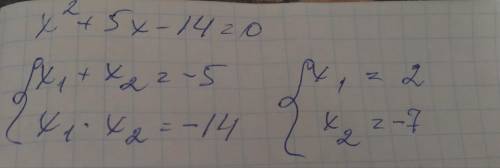 x² + 5x - 14 = 0
{ x₁ + x₂ = -5
x₁ · x₂ = -14
{ x₁ = 2
x₂ = -7